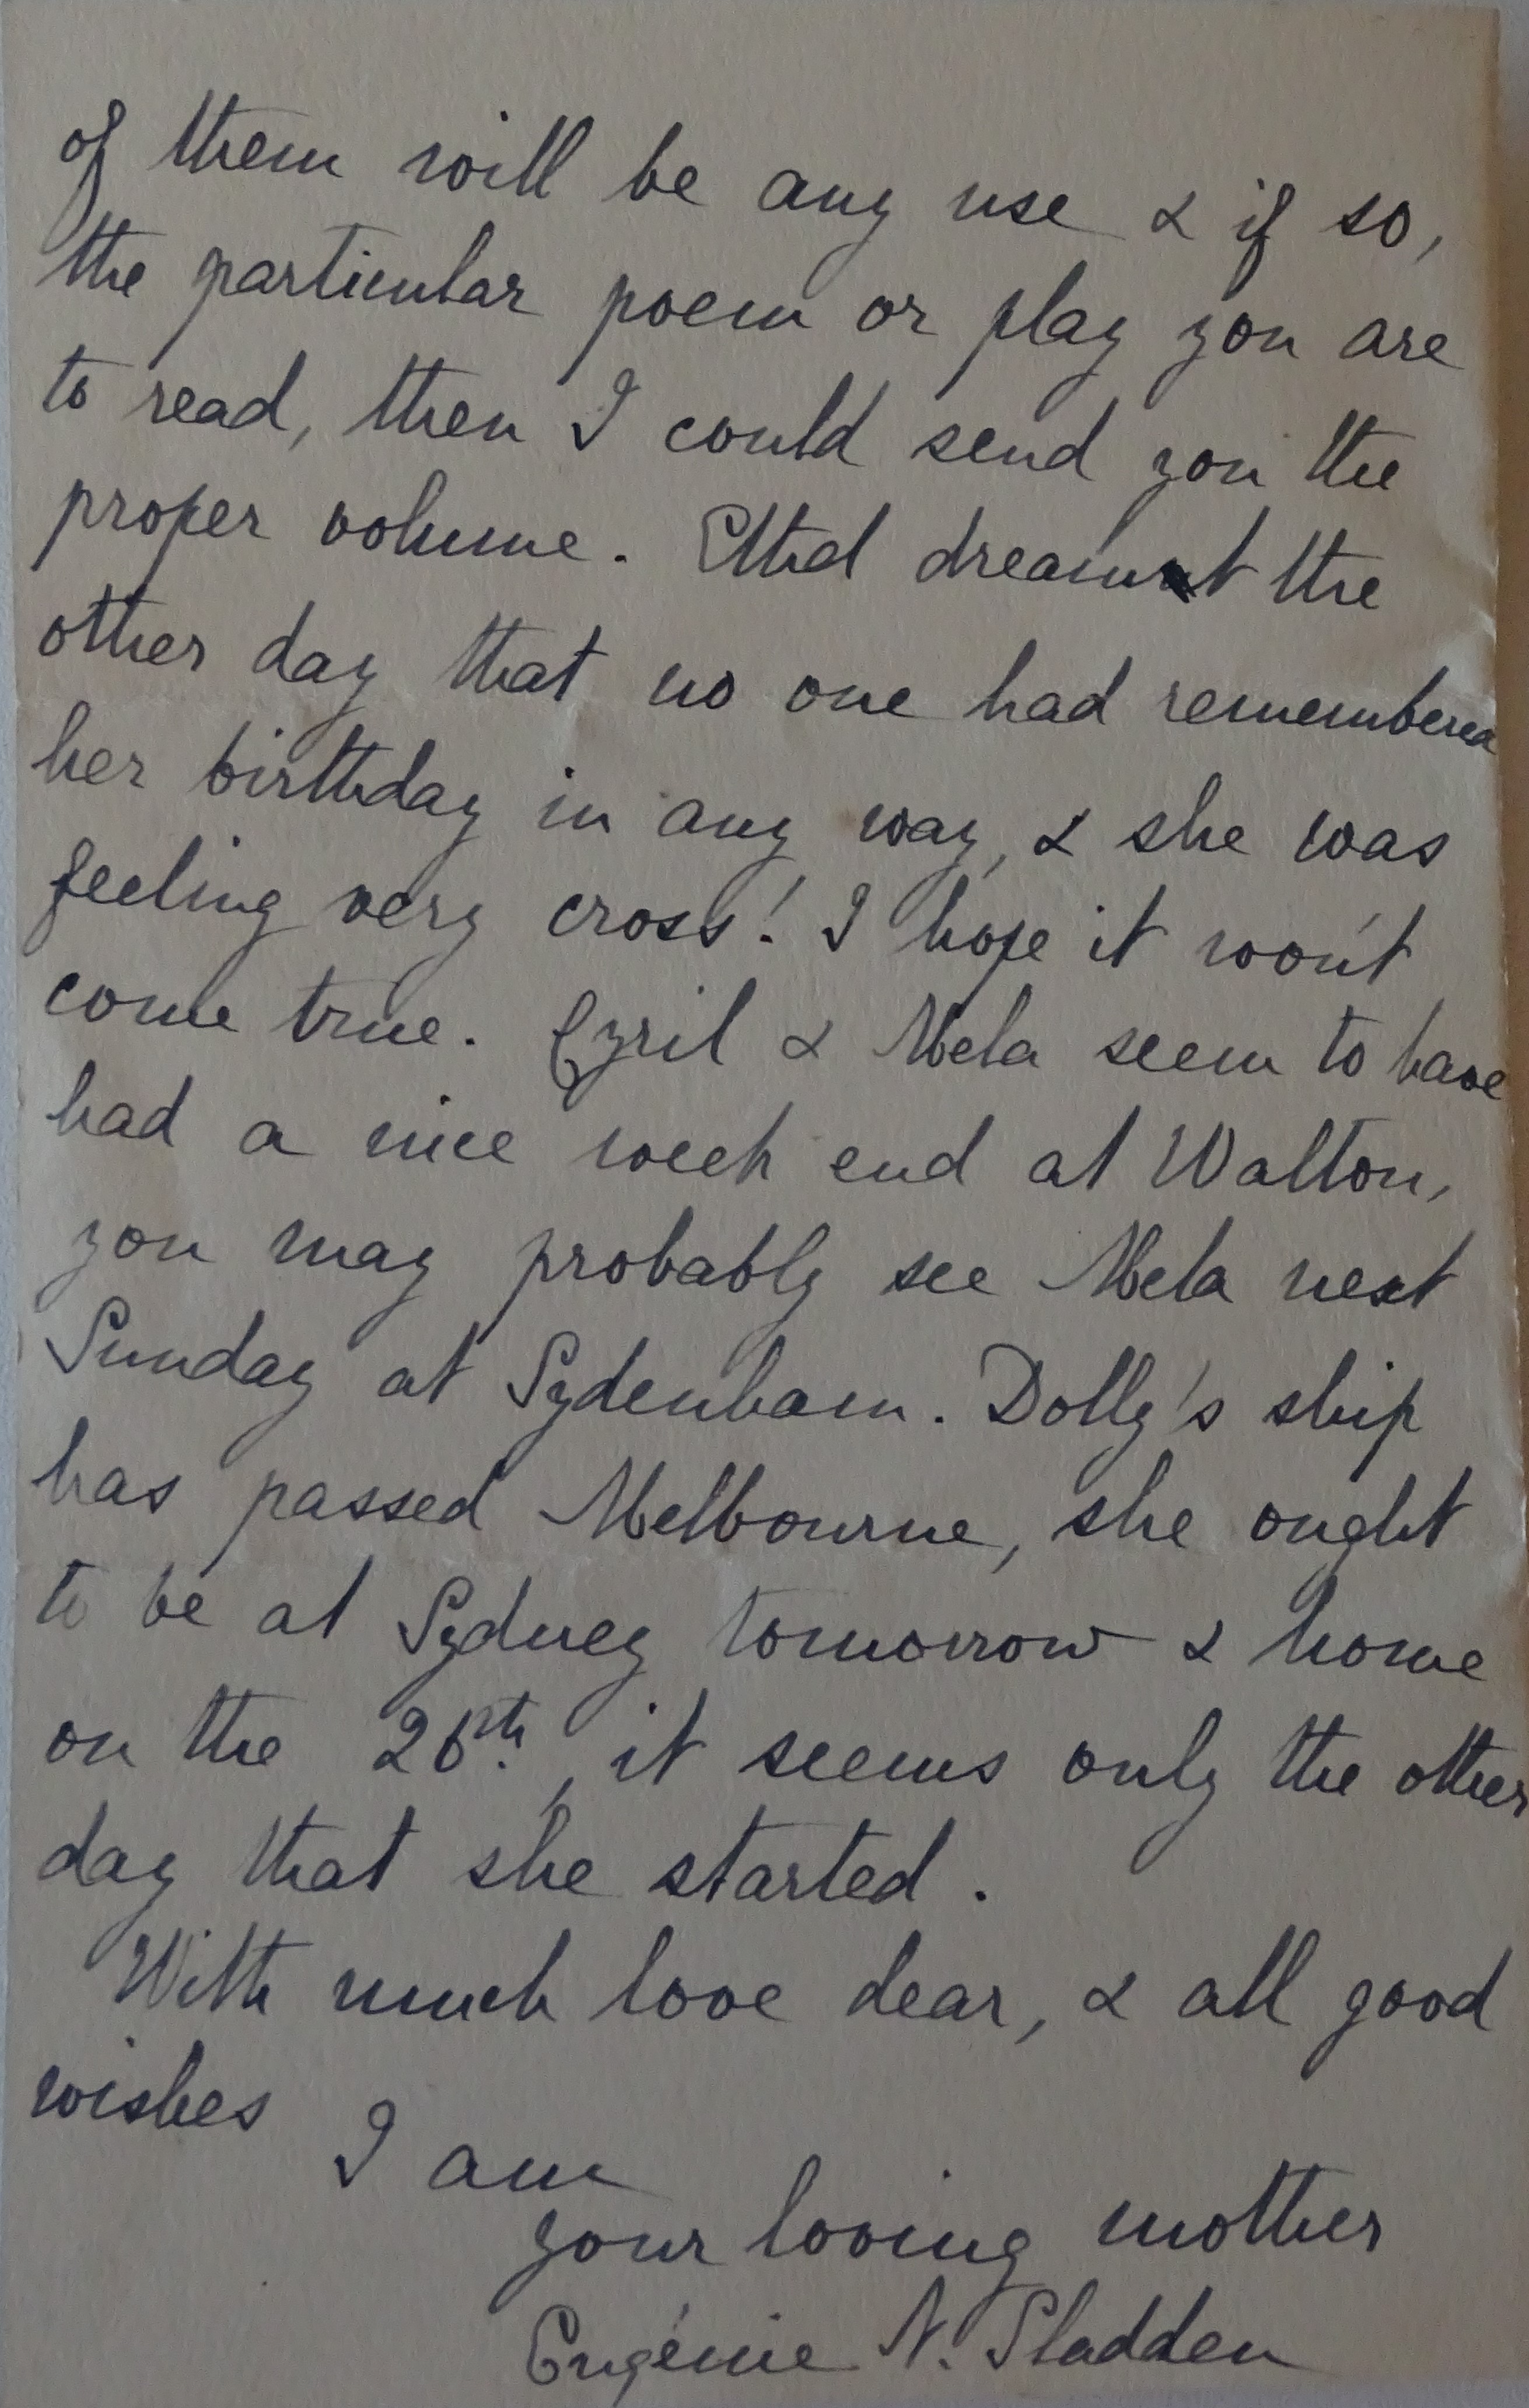 of them will be any use & if so,
the particular poem or play you are
to read, then I could send you the
proper volume. Ethel dreamt the
other day that no one had remembered
her birthday in any way, & she was
feeling very cross! I hope it won't
come true. Cyril & Mela seem to have
had a nice week end at Walton,
you may probably see Mela next
Sunday at Sydenham. Dolly's ship
has passed Melbourne, she ought
to be at Sydney tomorrow & home
on the 26th, it seems only the other
day that she started.
With much love dear, & all good
wishes
I am
your loving mother
Eugénie N. Sladden